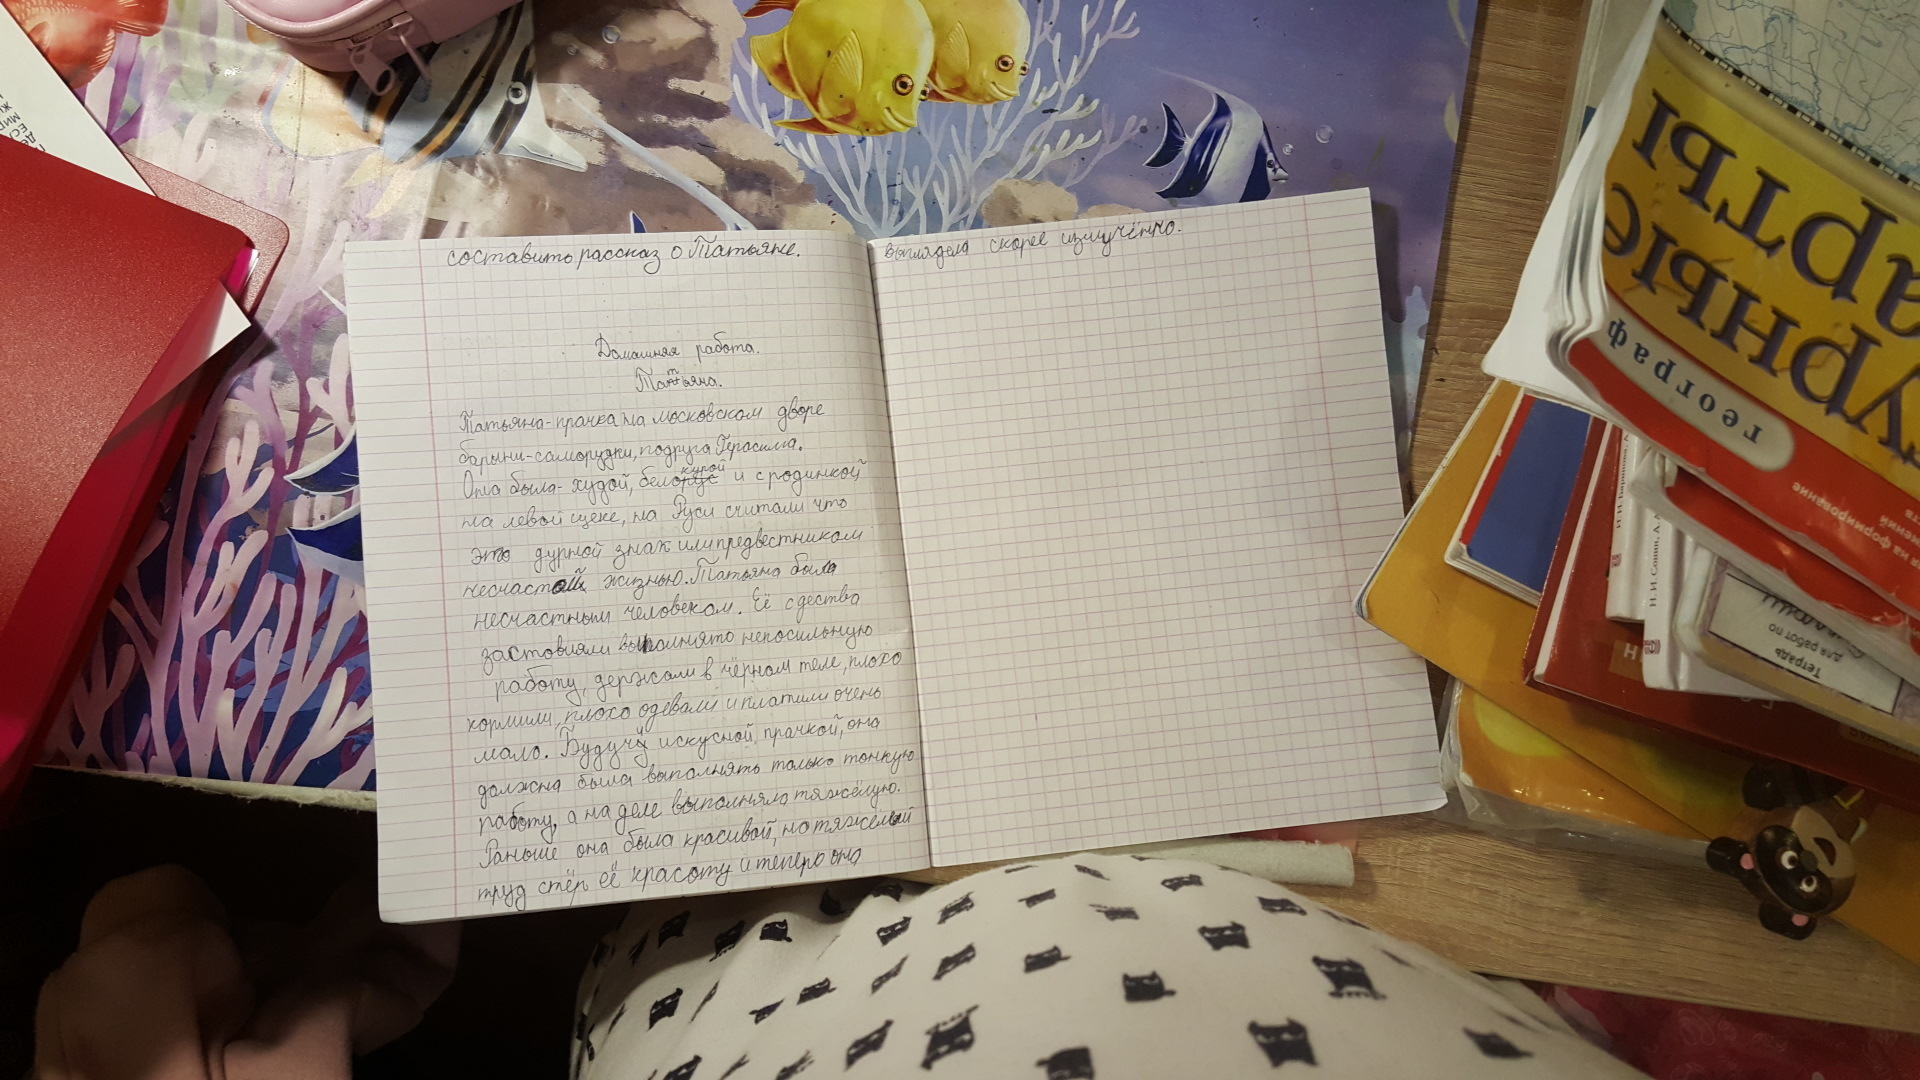 составить рассказ о Татьяне.
Домашняя работа.
Татьяна.
Татьяна-прачка на московском дворе
барыни-саморудки, подруга Герасима.
Она была- худой, белокурой и с родинкой
на левой щеке, на Руси считали что
это дурной знак или предвестником
несчастной жизнью. Татьяна была
несчастным человеком. Её с дества
застовляли выполнято непосильную
работу, держали в чёрном теле, плохо
кормили, плохо одевали и платили очень
мало. Будучи искусной прачкой, она
должна была выполнять только тонкую
работу, а на деле выполняла тяжёлую.
Раньше она была красивой, но тяжёлый
труд стёр её красоту и теперо она
выглядела скорее измучённо.
ДЕС
МИР
Ж
географ
УРНЫЕ
АРТЫ
на формирование
Н.И Сонин, А.А
Тетрадь
для работ по